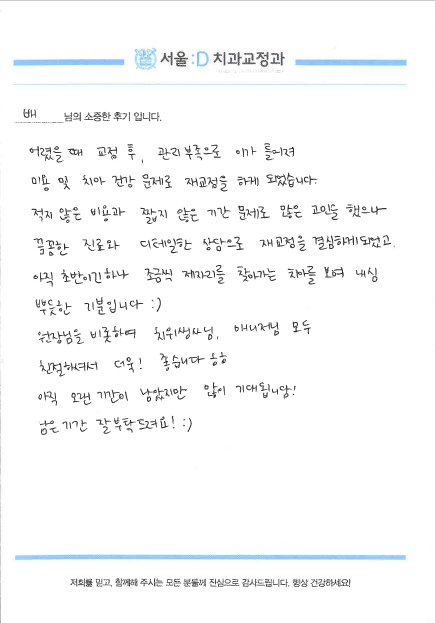 서울:D 치과교정과
배 님의 소중한 후기 입니다.
어렸을 때 교정 후, 관리부족으로 이가 틀어져
미용 및 치아 건강 문제로 재교정을 하게 되었습니다.
적지 않은 비용과 짧지 않은 기간 문제로 많은 고민을 했으나
꼼꼼한 진료와 디테일한 상담으로 재교정을 결심하게되었고,
아직 초반이긴하나 조금씩 제자리를 찾아가는 치아를 보며 내심
뿌듯한 기분입니다 :)
원장님을 비롯하여 치위생사님, 매니저님 모두
친절하셔서 더욱! 좋습니다 ㅎㅎ
아직 오랜 기간이 남았지만 많이 기대됩니당!
남은 기간 잘 부탁드려요! :)
저희를 믿고, 함께해 주시는 모든 분들께 진심으로 감사드립니다. 항상 건강하세요!